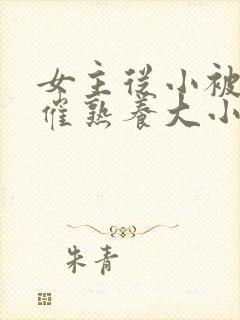 女主从小被
催熟养大小
朱青